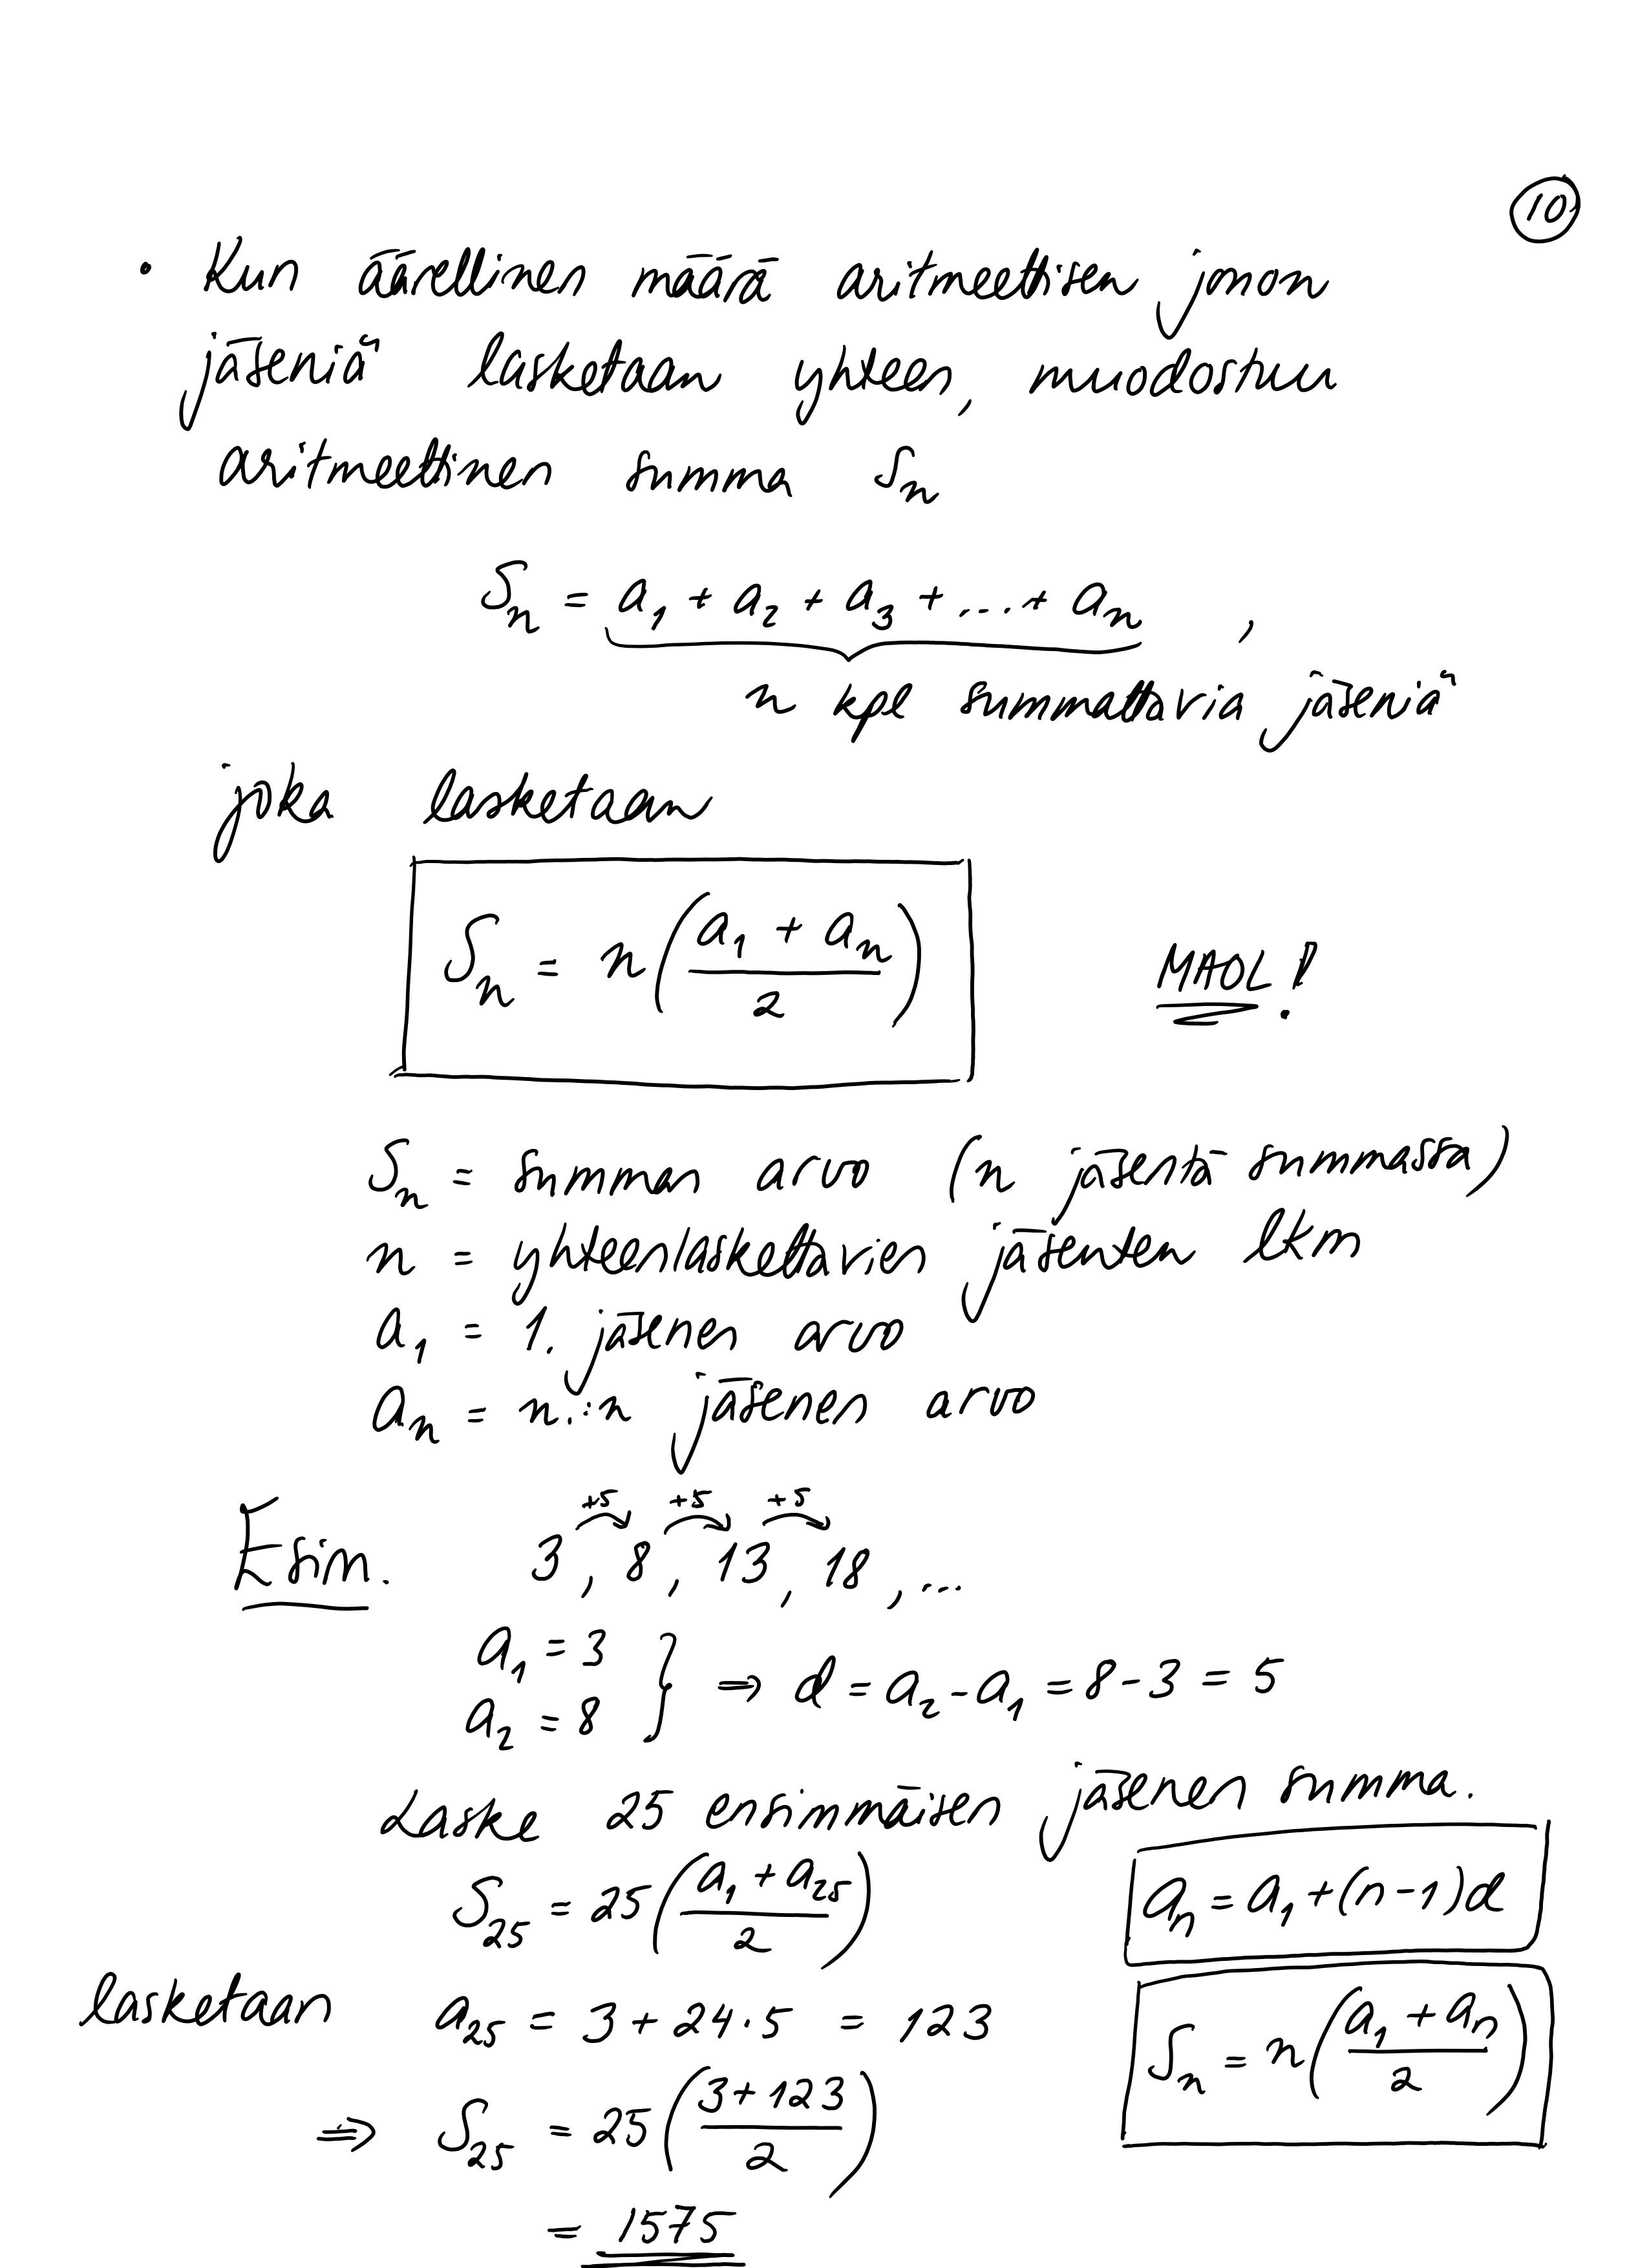 10
• Kun äärellinen määrä aritmeettisen jonon
jäseniä lasketaan yhteen, muodostuu
aritmeettinen summa Sₙ
Sₙ = a₁ + a₂ + a₃ + ... + aₙ ,
n kpl summattavia jäseniä
joka lasketaan
Sₙ = n((a₁ + aₙ)/2)
MAOL!
Sₙ = summan arvo (n jäsentä summassa)
n = yhteenlaskettavien jäsenten lkm
a₁ = 1. jäsenen arvo
aₙ = n.:n jäsenen arvo
+5 +5 +5
Esim. 3, 8, 13, 18, ...
a₁ = 3
a₂ = 8 } ⇒ d = a₂ - a₁ = 8 - 3 = 5
Laske 25 ensimmäisen jäsenen summa.
S₂₅ = 25((a₁ + a₂₅)/2)
aₙ = a₁ + (n - 1)d
lasketaan a₂₅ = 3 + 24 · 5 = 123
Sₙ = n((a₁ + aₙ)/2)
⇒ S₂₅ = 25((3 + 123)/2)
= 1575